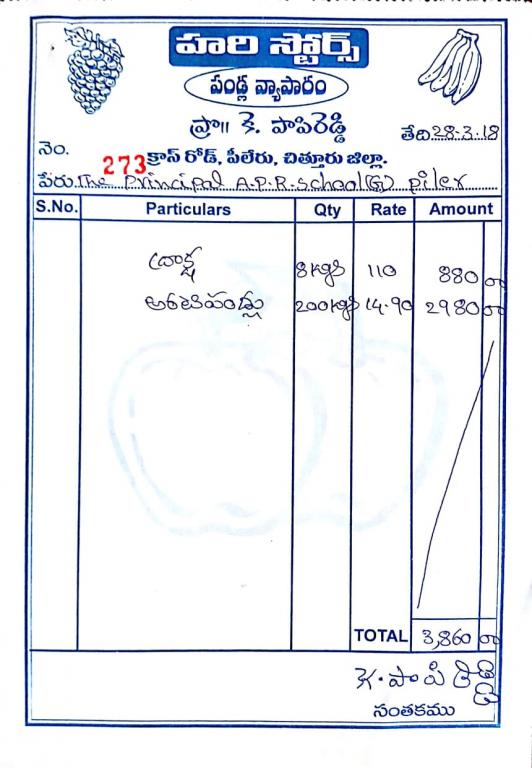 హరి స్టోర్స్
పండ్ల వ్యాపారం
ప్రొ॥ కె. పాపిరెడ్డి
తేది 28-3-18
నెం. 273 క్రాస్ రోడ్, పీలేరు, చిత్తూరు జిల్లా.
పేరు The Principal A.P.R. school(G) piler
S.No. Particulars Qty Rate Amount
ద్రాక్ష 8kgs 110 880 00
అరటిపండ్లు 200kgs 14-90 2980 00
TOTAL 3,860 00
కె. పాపిరెడ్డి
సంతకము